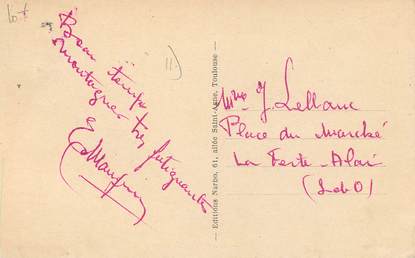 Lot
11)
Beau temps
montagne très fatiguante
E Maugin
— Editions Narbo, 61, allée Saint-Agne, Toulouse —
Mme J. Leblanc
Place du Marché
La Ferté-Alais
(S et O)